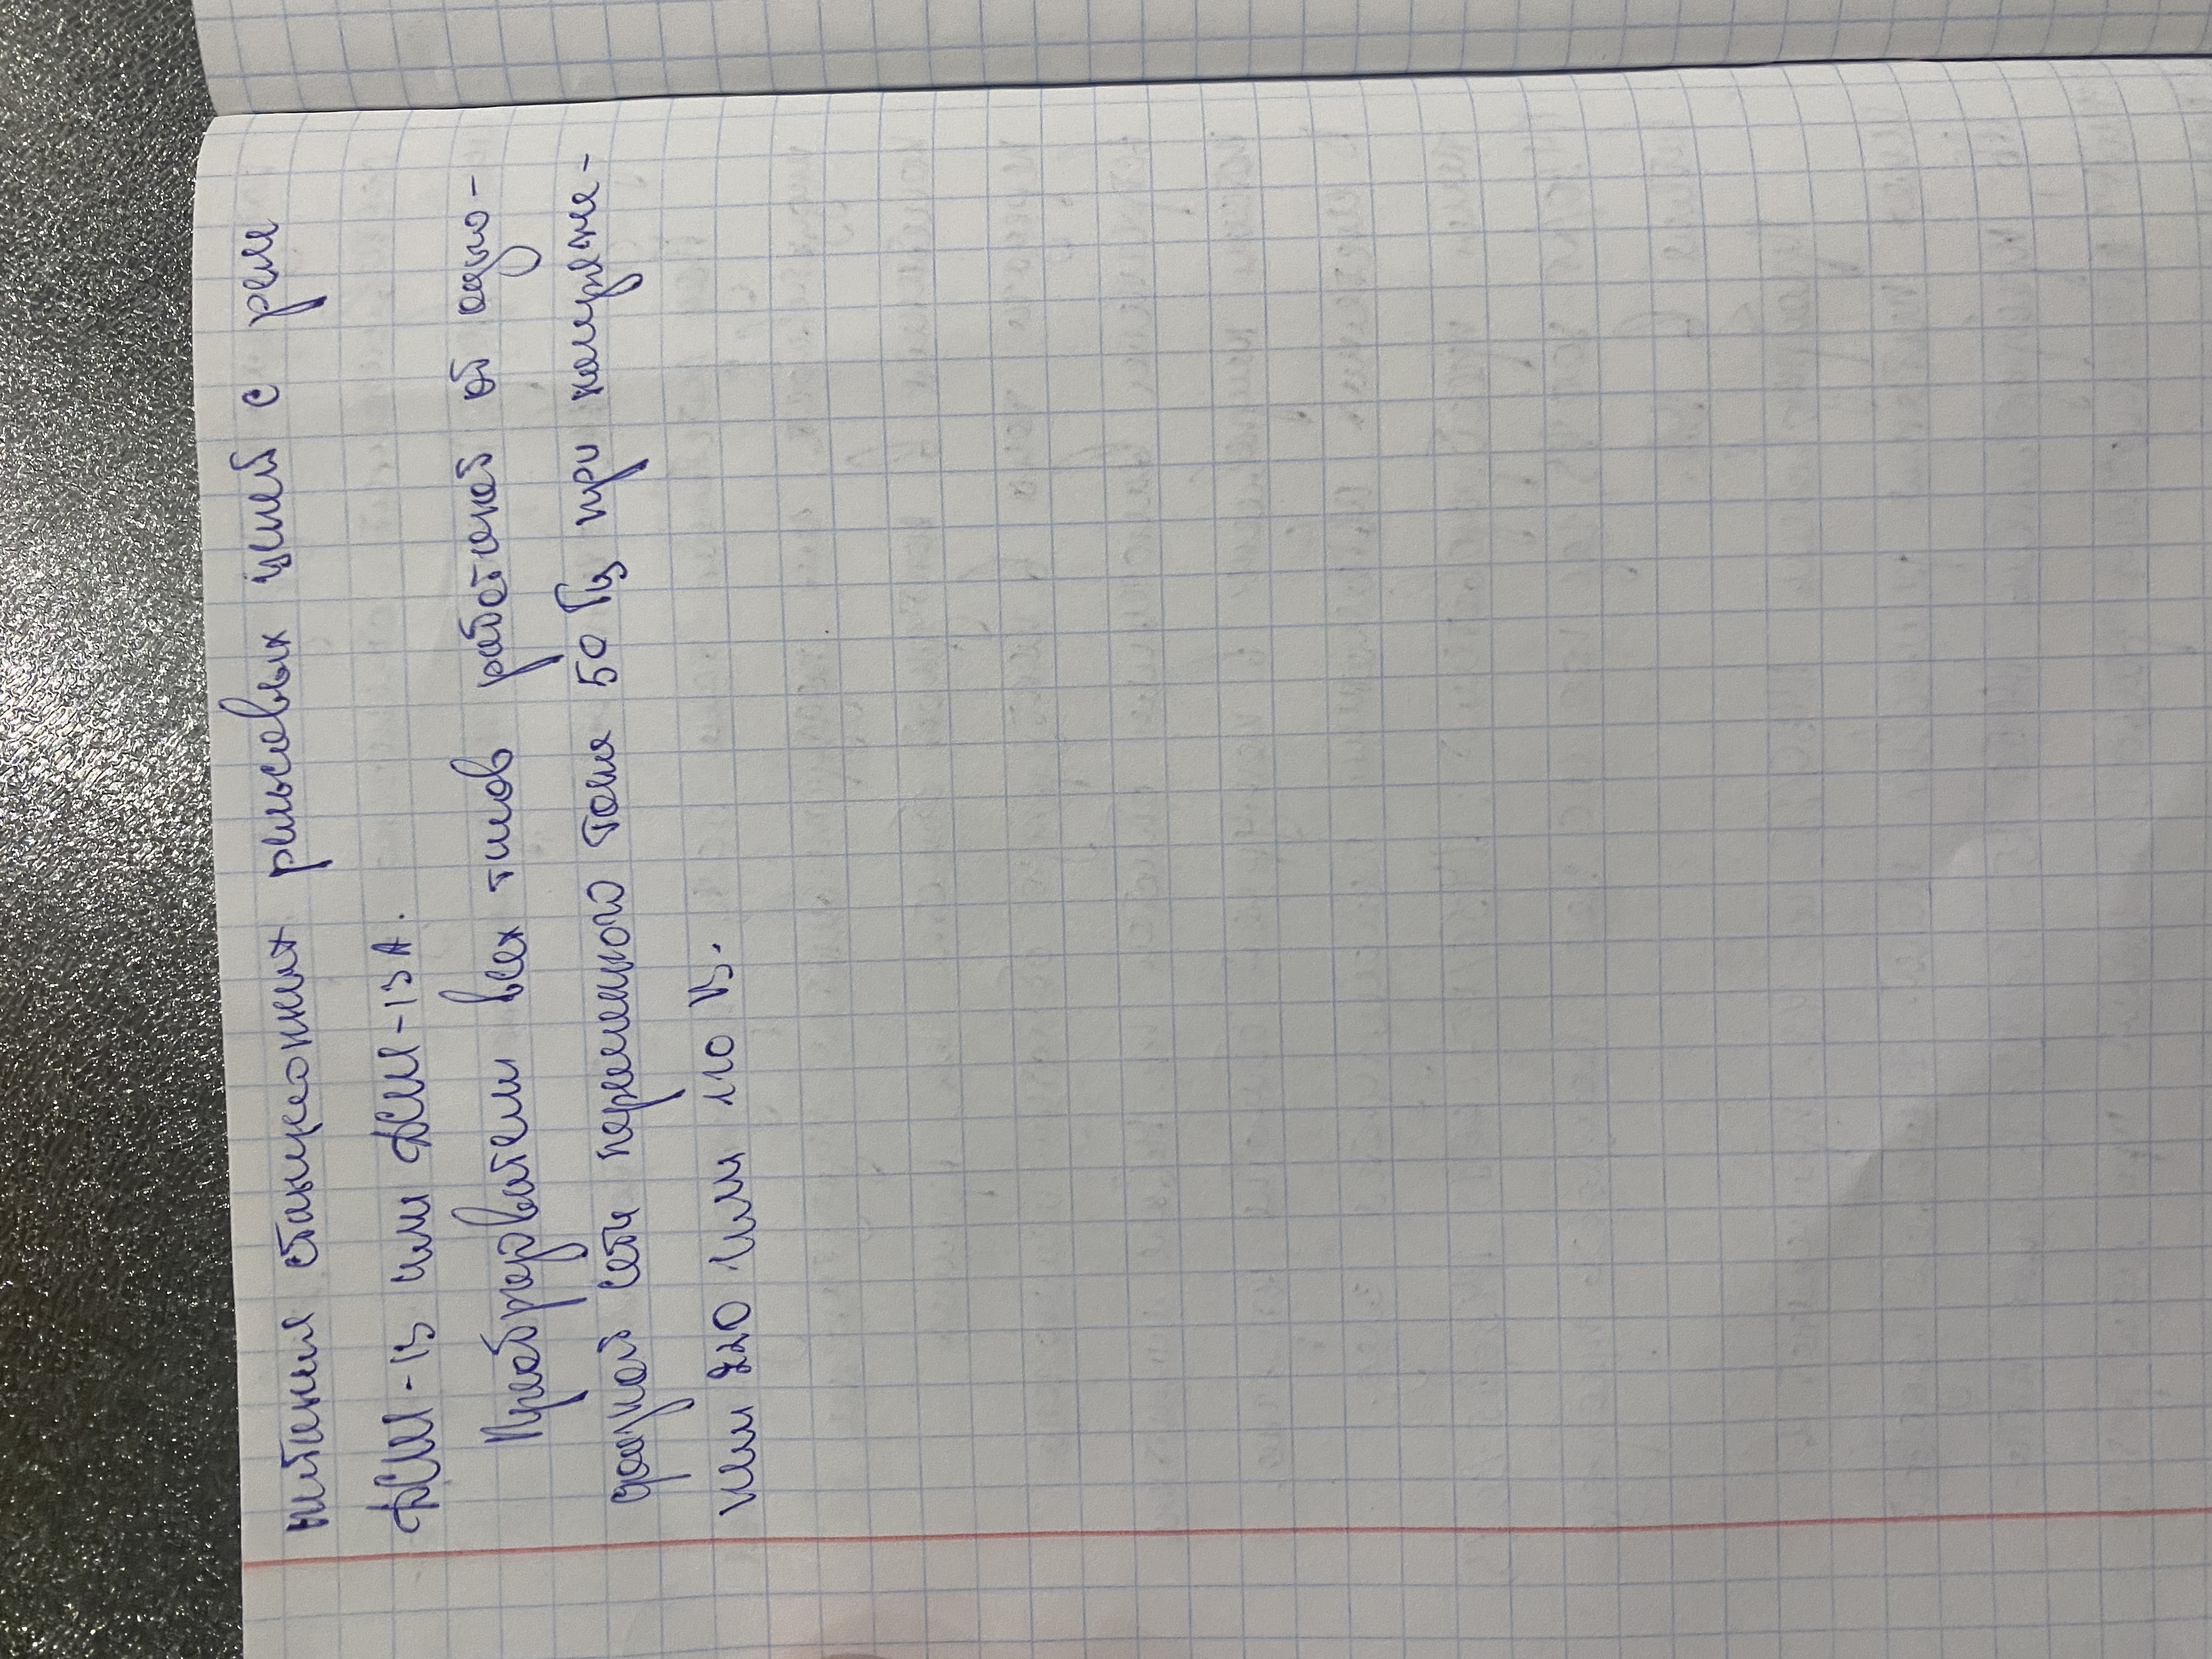 питания станционных рельсовых цепей с реле
ДСШ-13 или ДСШ-13А.
Преобразователи всех типов работают от одно-
фазной сети переменного тока 50 Гц при напряже-
нии 220 или 110 В.